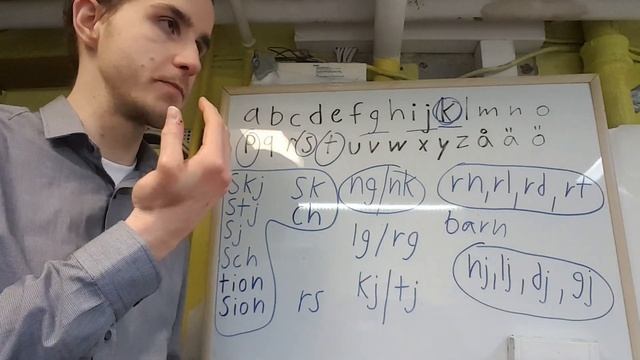 abcdefghijklmno
pqrstuvwxyzåäö
skj
stj
sj
sch
tion
sion
sk
ch
rs
ng/nk
lg/rg
kj/tj
rn, rl, rd, rt
barn
hj, lj, dj, gj